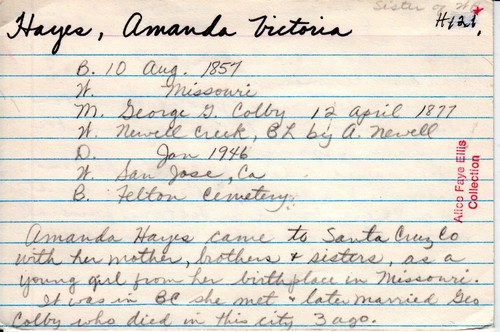 Sister of
H121
Hayes, Amanda Victoria
B. 10 Aug. 1857
W. Missouri
M. George G. Colby 12 April 1877
W. Newell Creek, BL by A. Newell
D. Jan 1946
W. San Jose, Ca
B. Felton Cemetery.
Alice Faye Ellis
Collection
Amanda Hayes came to Santa Cruz Co
with her mother, brothers & sisters, as a
young girl from her birthplace in Missouri.
It was in BC she met & later married Geo
Colby who died in this city 3 ago.